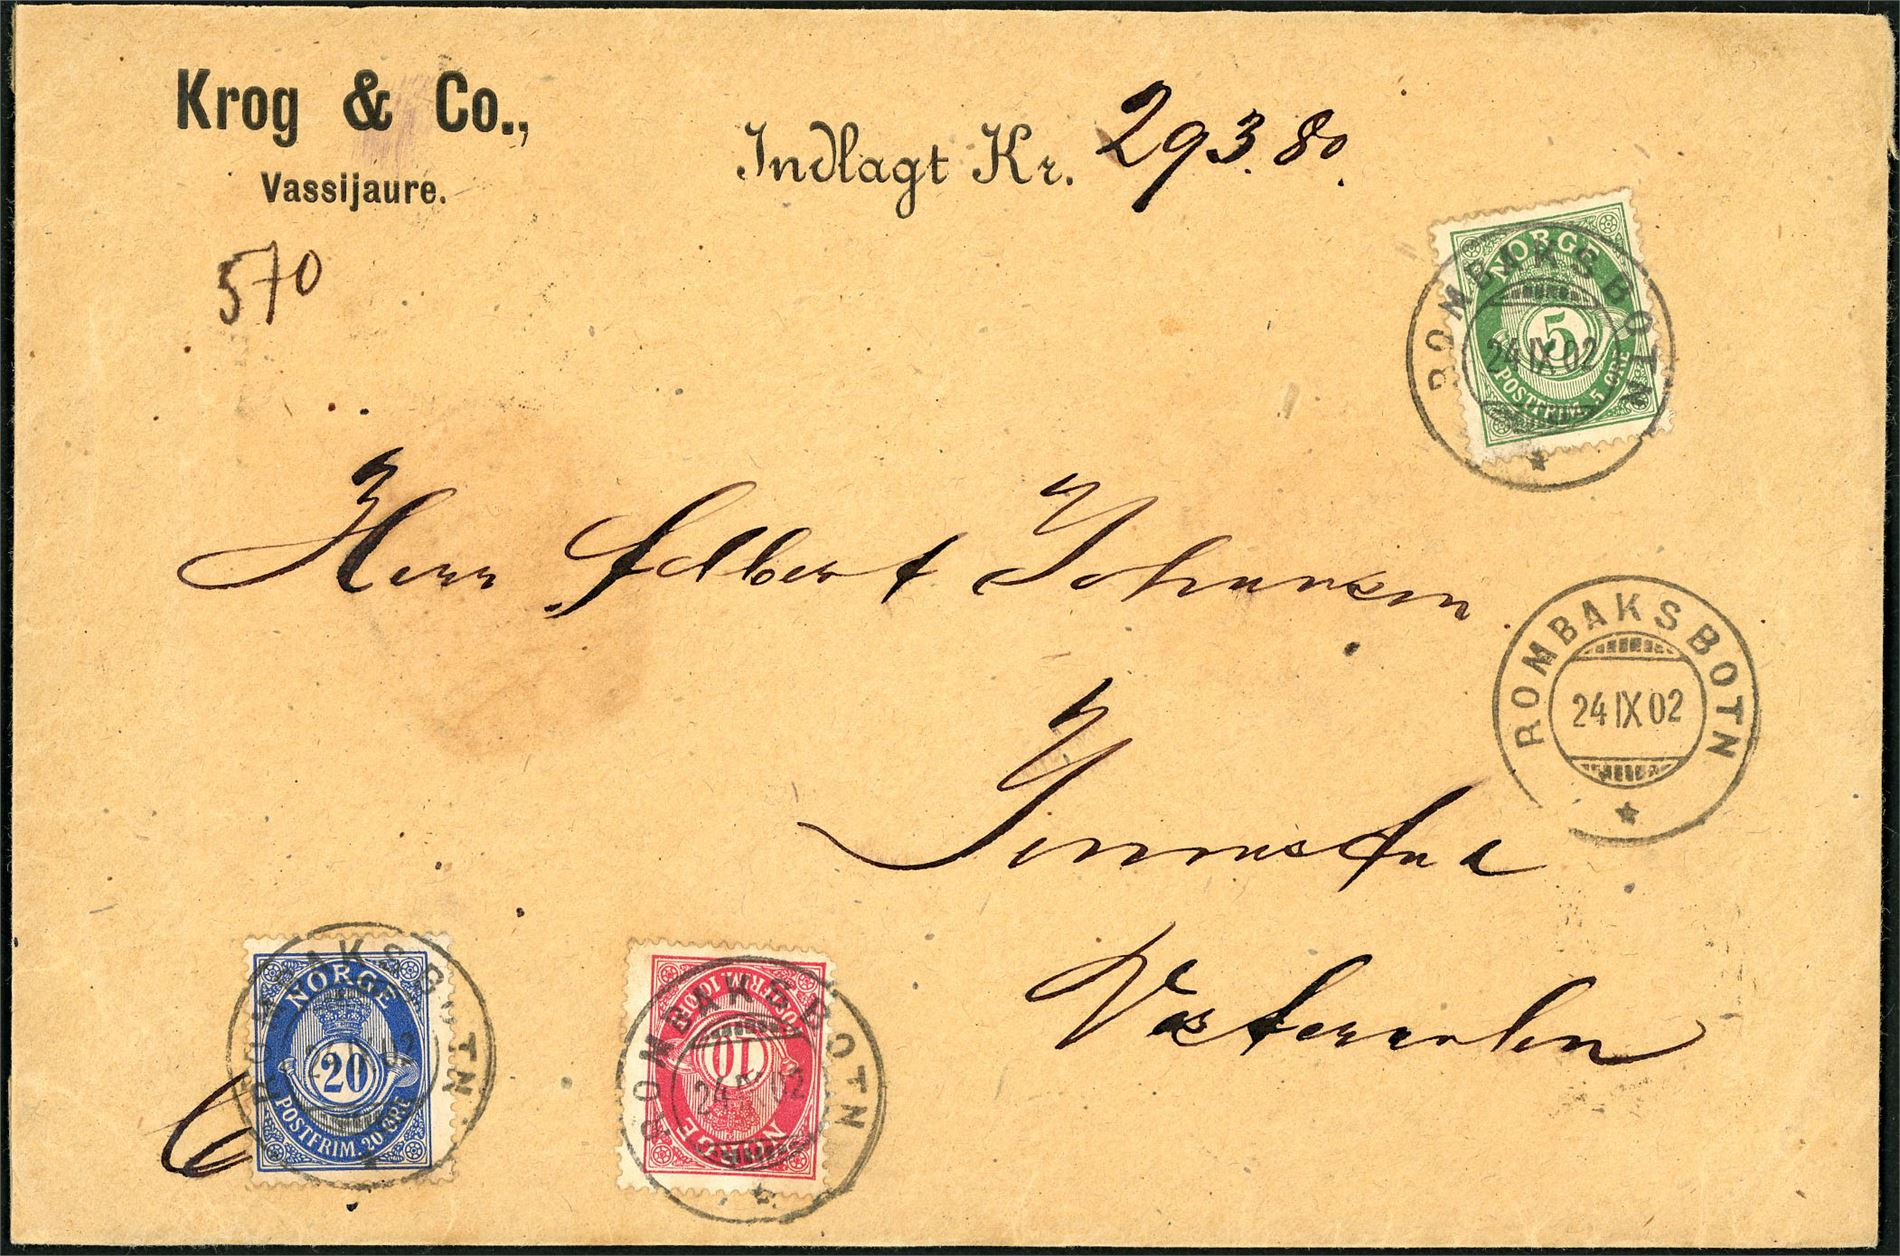 Krog & Co.,
Vassijaure.
Indlagt Kr. 293.80.
570
NORGE
5
POSTFRIM. 5 ØRE
ROMBAKSBOTN
24 IX 02
Herr Edbert Johansen
ROMBAKSBOTN
24 IX 02
Vesteraalen
NORGE
20
POSTFRIM. 20 ØRE
ROMBAKSBOTN
NORGE
10
POSTFRIM. 10 ØRE
ROMBAKSBOTN
24 IX 02